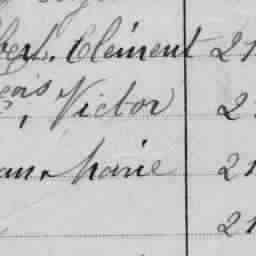 bert. Clément 21
çois
, Victor 2
an, Marie 21
21